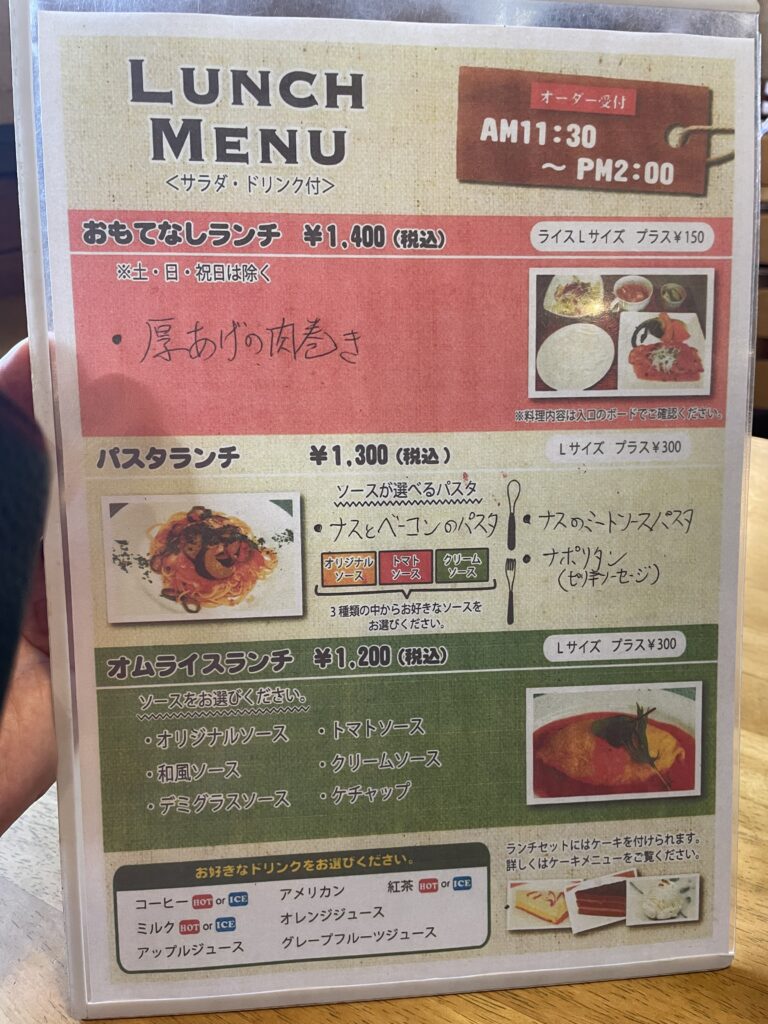 LUNCH
MENU
<サラダ・ドリンク付>
オーダー受付
AM11:30
～ PM2:00
おもてなしランチ ￥1,400 (税込)
ライスLサイズ プラス￥150
※土・日・祝日は除く
・厚あげの肉巻き
※料理内容は入口のボードでご確認ください。
パスタランチ ￥1,300 (税込)
Lサイズ プラス￥300
ソースが選べるパスタ
・ナスとベーコンのパスタ
オリジナルソース トマトソース クリームソース
3種類の中からお好きなソースを
お選びください。
・ナスのミートソースパスタ
・ナポリタン
オムライスランチ ￥1,200 (税込)
Lサイズ プラス￥300
ソースをお選びください。
・オリジナルソース ・トマトソース
・和風ソース ・クリームソース
・デミグラスソース ・ケチャップ
お好きなドリンクをお選びください。
コーヒー HOT or ICE アメリカン 紅茶 HOT or ICE
ミルク HOT or ICE オレンジジュース
アップルジュース グレープフルーツジュース
ランチセットにはケーキを付けられます。
詳しくはケーキメニューをご覧ください。